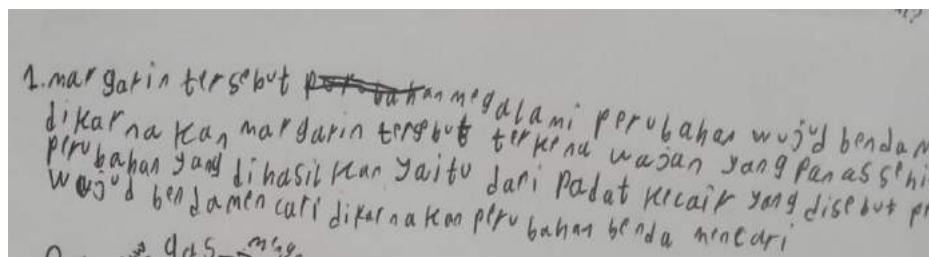 1. margarin tersebut megalami perubahan wujud benda
dikarnakan margarin tersebut terkena wajan yang panas sehi
perubahan yang dihasilkan yaitu dari padat kecair yang disebut p
wujud benda mencari dikarnakan perubahan benda mencari
gas